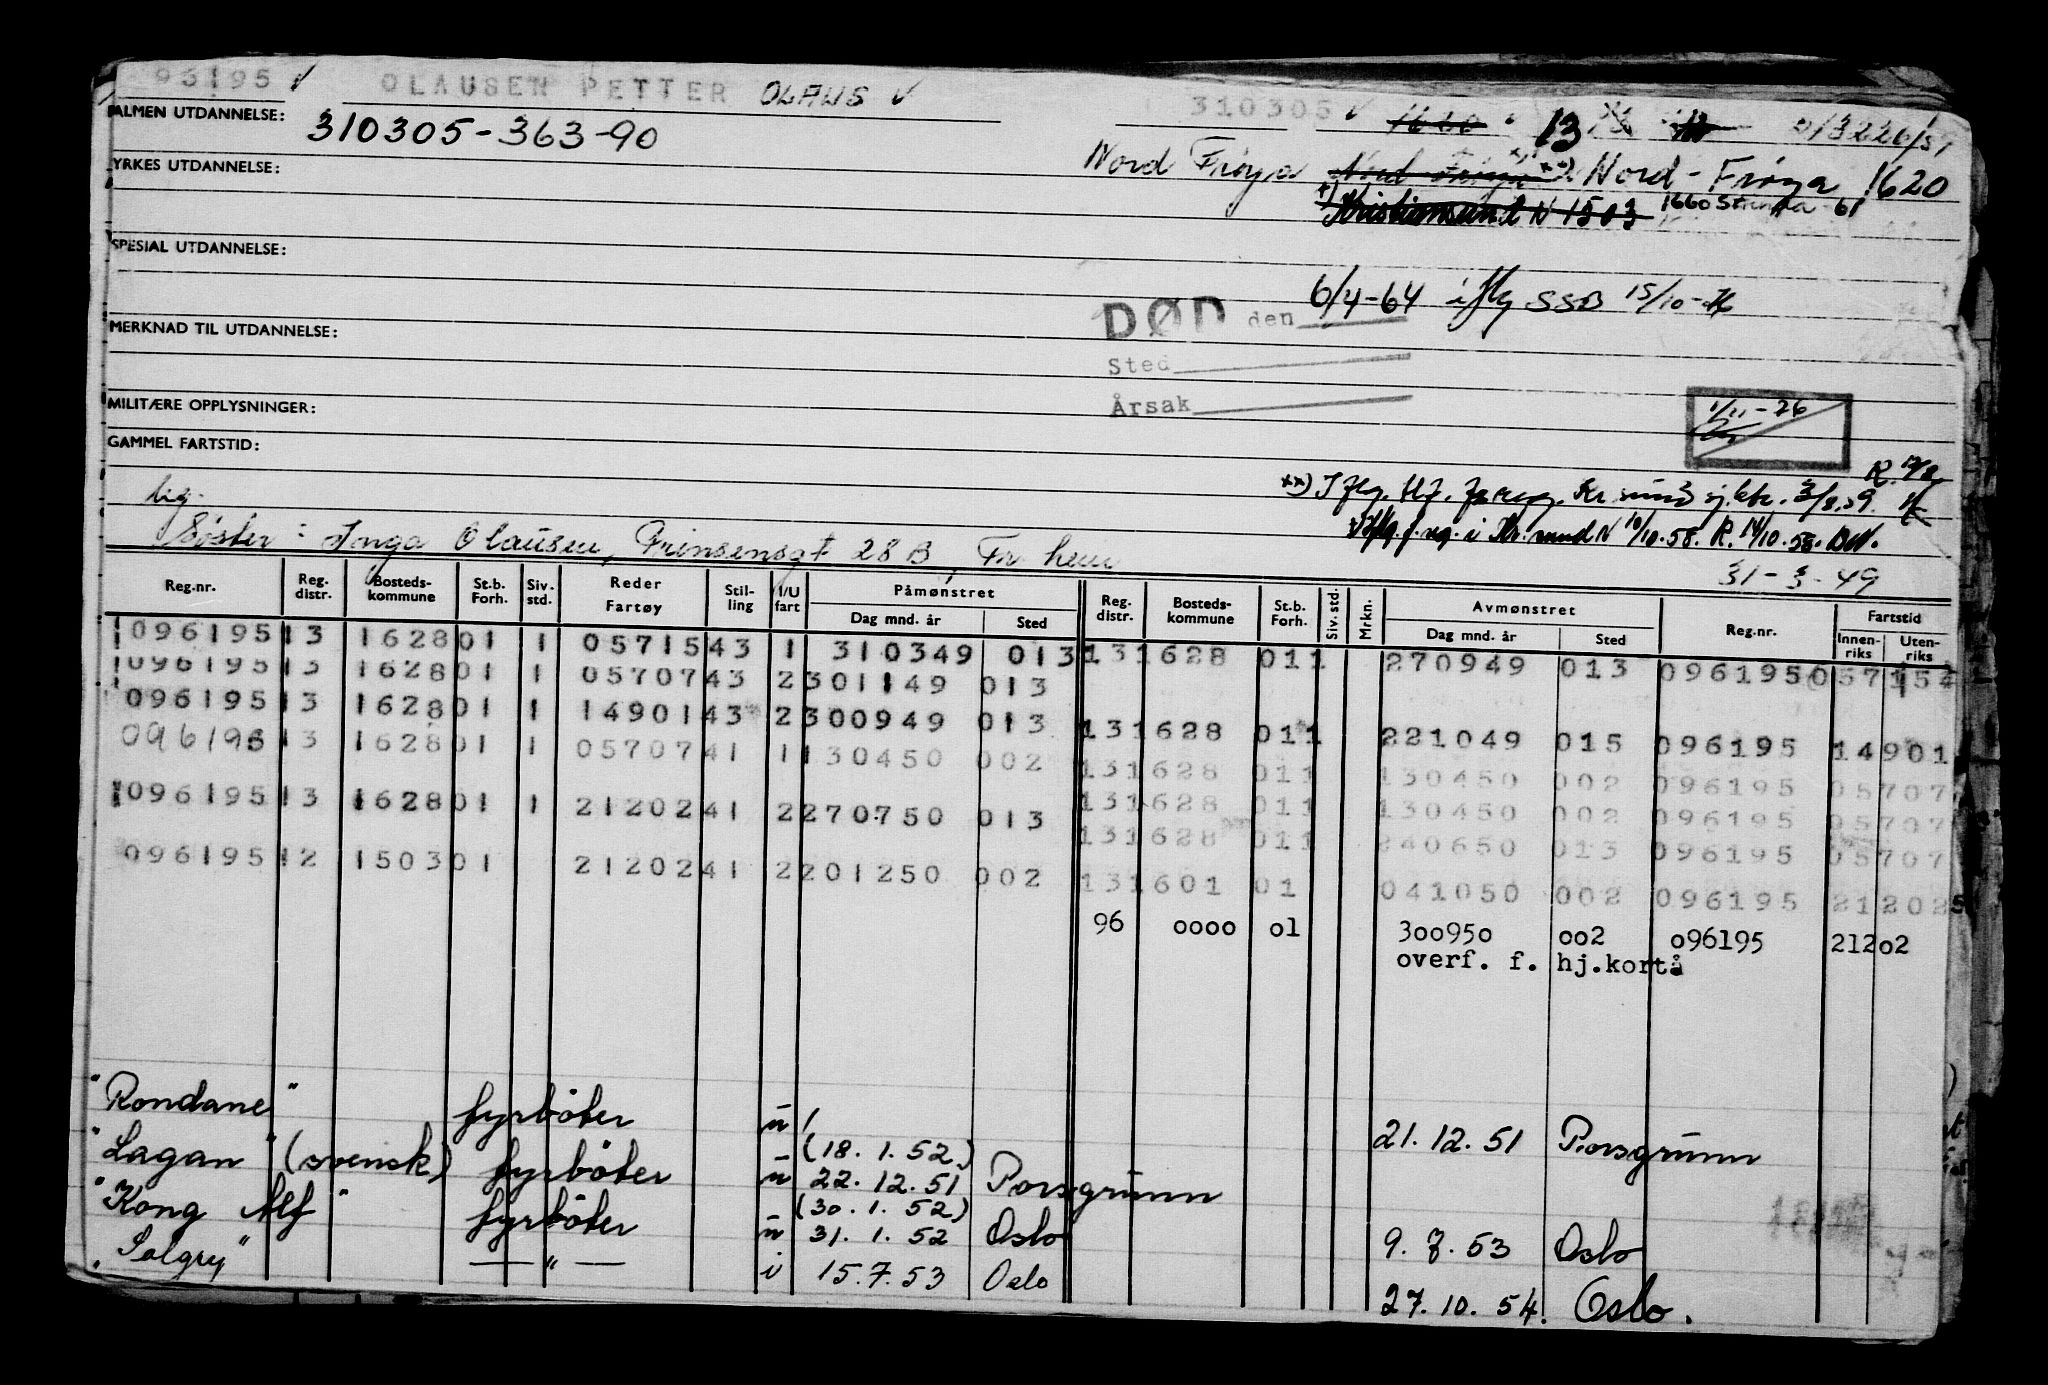 96195 ✓ OLAUSEN PETTER OLAUS ✓ 310305 ✓ 1660 13
ALMEN UTDANNELSE: 310305-363-90
Nord Frøya Nord Frøya Nord-Frøya 1620
YRKES UTDANNELSE:
Kristiansund N 1503 1660 Strinda 61
SPESIAL UTDANNELSE:
DØD den 6/4-64 iflg SSB 15/10-
Sted
Årsak
MERKNAD TIL UTDANNELSE:
MILITÆRE OPPLYSNINGER:
1/11-26
GAMMEL FARTSTID:
Søster: Inga Olausen, Prinsensgt 28 B, Tr heim
31-3-49
Reg.nr. Reg. distr. Bosteds-kommune St.b. Forh. Siv. std. Reder Fartøy Stil-ling I/U fart Påmønstret Dag mnd. år Sted Reg. distr. Bosteds-kommune St.b. Forh. Siv. std. Mrkn. Avmønstret Dag mnd. år Sted Reg.nr. Fartstid Innen-riks Uten-riks
096195 13 1628 01 1 05715 43 1 310349 013 13 1628 01 1 270949 013 096195 057154
096195 13 1628 01 1 05707 43 2 301149 013
096195 13 1628 01 1 14901 43 2 300949 013 13 1628 01 1 221049 015 096195 14901
096195 13 1628 01 1 05707 41 1 130450 002 13 1628 01 1 130450 002 096195 05707
096195 13 1628 01 1 21202 41 2 270750 013 13 1628 01 1 130450 002 096195 05707
13 1628 01 1 240650 013 096195 05707
096195 12 1503 01 21202 41 2 201250 002 13 1601 01 041050 002 096195 21202
96 0000 01 300950 002 096195 21202
overf. f. hj.kortå
"Rondane" fyrböter u 21.12.51 Porsgrunn
(18.1.52)
"Lagan" (svensk) fyrböter u 22.12.51 Porsgrunn
(30.1.52)
"Kong Alf" fyrböter u 31.1.52 Oslo 9.7.53 Oslo
"Solgry" — " — i 15.7.53 Oslo 27.10.54. Oslo.